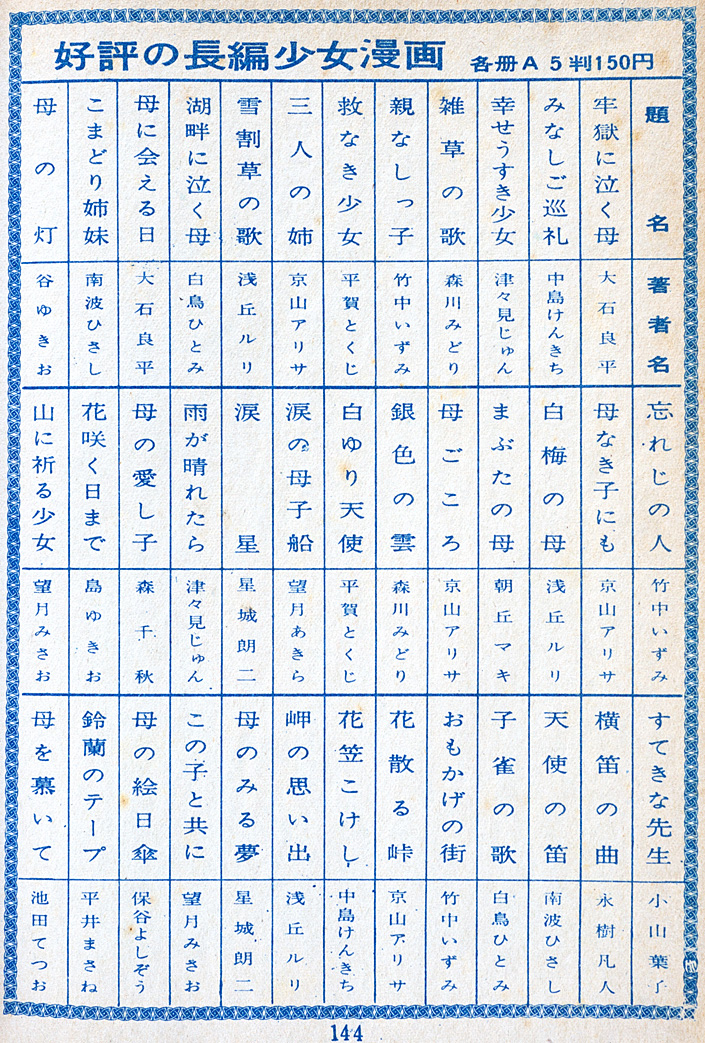 好評の長編少女漫画 各册A5判150円
題名 著者名
牢獄に泣く母 大石良平
みなしご巡礼 中島けんきち
幸せうすき少女 津々見じゅん
雑草の歌 森川みどり
親なしっ子 竹中いずみ
救なき少女 平賀とくじ
三人の姉 京山アリサ
雪割草の歌 浅丘ルリ
湖畔に泣く母 白鳥ひとみ
母に会える日 大石良平
こまどり姉妹 南波ひさし
母の灯 谷ゆきお
忘れじの人 竹中いずみ
母なき子にも 京山アリサ
白梅の母 浅丘ルリ
まぶたの母 朝丘マキ
母ごころ 京山アリサ
銀色の雲 森川みどり
白ゆり天使 平賀とくじ
涙の母子船 望月あきら
涙星 星城朗二
雨が晴れたら 津々見じゅん
母の愛し子 森千秋
花咲く日まで 島ゆきお
山に祈る少女 望月みさお
すてきな先生 小山葉子
横笛の曲 永樹凡人
天使の笛 南波ひさし
子雀の歌 白鳥ひとみ
おもかげの街 竹中いずみ
花散る峠 京山アリサ
花笠こけし 中島けんきち
岬の思い出 浅丘ルリ
母のみる夢 星城朗二
この子と共に 望月みさお
母の絵日傘 保谷よしぞう
鈴蘭のテープ 平井まさね
母を慕いて 池田てつお
144